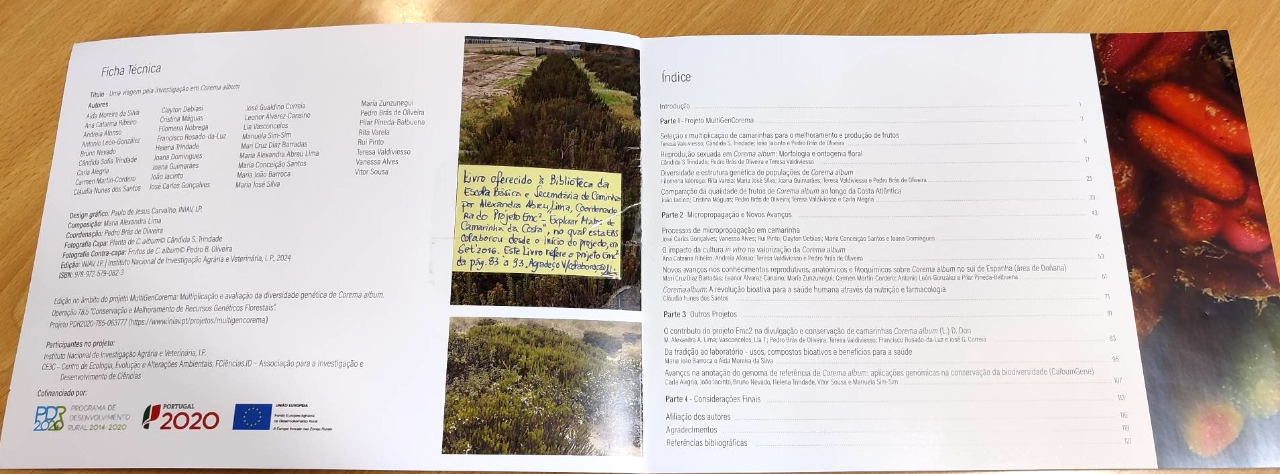 Ficha Técnica
Título - Uma viagem pela investigação em Corema album
Autores
Aida Moreira da Silva
Ana Catarina Ribeiro
Andreia Afonso
Antonio León-González
Bruno Nevado
Cândida Sofia Trindade
Carla Alegria
Carmen Martín-Cordero
Cláudia Nunes dos Santos
Clayton Debiasi
Cristina Máguas
Filomena Nóbrega
Francisco Rosado-da-Luz
Helena Trindade
Joana Domingues
Joana Guimarães
João Jacinto
José Carlos Gonçalves
José Gualdino Correia
Leonor Álvarez-Cansino
Lia Vasconcelos
Manuela Sim-Sim
Mari Cruz Díaz Barradas
Maria Alexandra Abreu Lima
Maria Conceição Santos
Maria João Barroca
Maria José Silva
María Zunzunegui
Pedro Brás de Oliveira
Pilar Pineda-Balbuena
Rita Varela
Rui Pinto
Teresa Valdiviesso
Vanessa Alves
Vítor Sousa
Design gráfico: Paulo de Jesus Carvalho, INIAV, I.P.
Composição: Maria Alexandra Lima
Coordenação: Pedro Brás de Oliveira
Fotografia Capa: Planta de C. album© Cândida S. Trindade
Fotografia Contra-capa: Frutos de C. album© Pedro B. Oliveira
Edição: INIAV, I.P. | Instituto Nacional de Investigação Agrária e Veterinária, I. P., 2024
ISBN: 978-972-579-082-3
Edição no âmbito do projeto MultiGenCorema: Multiplicação e avaliação da diversidade genética de Corema album.
Operação 7.8.5 "Conservação e Melhoramento de Recursos Genéticos Florestais".
Projeto PDR2020-785-063777 (https://www.iniav.pt/projetos/multigencorema)
Participantes no projeto:
Instituto Nacional de Investigação Agrária e Veterinária, I.P.
CE3C – Centro de Ecologia, Evolução e Alterações Ambientais, FCiências.ID – Associação para a Investigação e
Desenvolvimento de Ciências
Cofinanciado por:
PDR
2020
PROGRAMA DE
DESENVOLVIMENTO
RURAL 2014·2020
PORTUGAL
2020
UNIÃO EUROPEIA
Fundo Europeu Agrícola
de Desenvolvimento Rural
A Europa Investe nas Zonas Rurais
Livro oferecido à Biblioteca da
Escola Básica e Secundária de Caminha
por Alexandra Abreu Lima, Coordenado
ra do Projeto Emc². Explorar Matos de
Camarinha da Costa", no qual esta EBS
colaborou desde o início do projeto, em
Set 2016. Este Livro refere o projeto Emc²
da pág. 83 a 93. Agradeço V/colaboração
Índice
Introdução 1
Parte 1 - Projeto MultiGenCorema 3
Seleção e multiplicação de camarinhas para o melhoramento e produção de frutos
Teresa Valdiviesso; Cândida S. Trindade; João Jacinto e Pedro Brás de Oliveira 5
Reprodução sexuada em Corema album: Morfologia e ontogenia floral
Cândida S. Trindade; Pedro Brás de Oliveira e Teresa Valdiviesso 17
Diversidade e estrutura genética de populações de Corema album
Filomena Nóbrega; Rita Varela; Maria José Silva; Joana Guimarães; Teresa Valdiviesso e Pedro Brás de Oliveira 25
Comparação da qualidade de frutos de Corema album ao longo da Costa Atlântica
João Jacinto; Cristina Máguas; Pedro Brás de Oliveira; Teresa Valdiviesso e Carla Alegria 33
Parte 2 - Micropropagação e Novos Avanços 43
Processos de micropropagação em camarinha
José Carlos Gonçalves; Vanessa Alves; Rui Pinto; Clayton Debiasi; Maria Conceição Santos e Joana Domingues 45
O impacto da cultura in vitro na valorização da Corema album
Ana Catarina Ribeiro; Andreia Afonso; Teresa Valdiviesso e Pedro Brás de Oliveira 53
Novos avanços nos conhecimentos reprodutivos, anatómicos e fitoquímicos sobre Corema album no sul de Espanha (área de Doñana)
Mari Cruz Díaz Barradas; Leonor Álvarez-Cansino; María Zunzunegui; Carmen Martín-Cordero; Antonio León-González e Pilar Pineda-Balbuena 61
Corema album: A revolução bioativa para a saúde humana através da nutrição e farmacologia
Cláudia Nunes dos Santos 71
Parte 3 Outros Projetos 81
O contributo do projeto Emc2 na divulgação e conservação de camarinhas Corema album (L.) D. Don
M. Alexandra A, Lima; Vasconcelos, Lia T.; Pedro Brás de Oliveira; Teresa Valdiviesso; Francisco Rosado-da-Luz e José G. Correia 83
Da tradição ao laboratório - usos, compostos bioativos e benefícios para a saúde
Maria João Barroca e Aida Moreira da Silva 95
Avanços na anotação do genoma de referência de Corema album: aplicações genómicas na conservação da biodiversidade (CalbumGene)
Carla Alegria, João Jacinto, Bruno Nevado, Helena Trindade, Vítor Sousa e Manuela Sim-Sim 107
Parte 4 - Considerações Finais 113
Afiliação dos autores 116
Agradecimentos 119
Referências bibliográficas 121